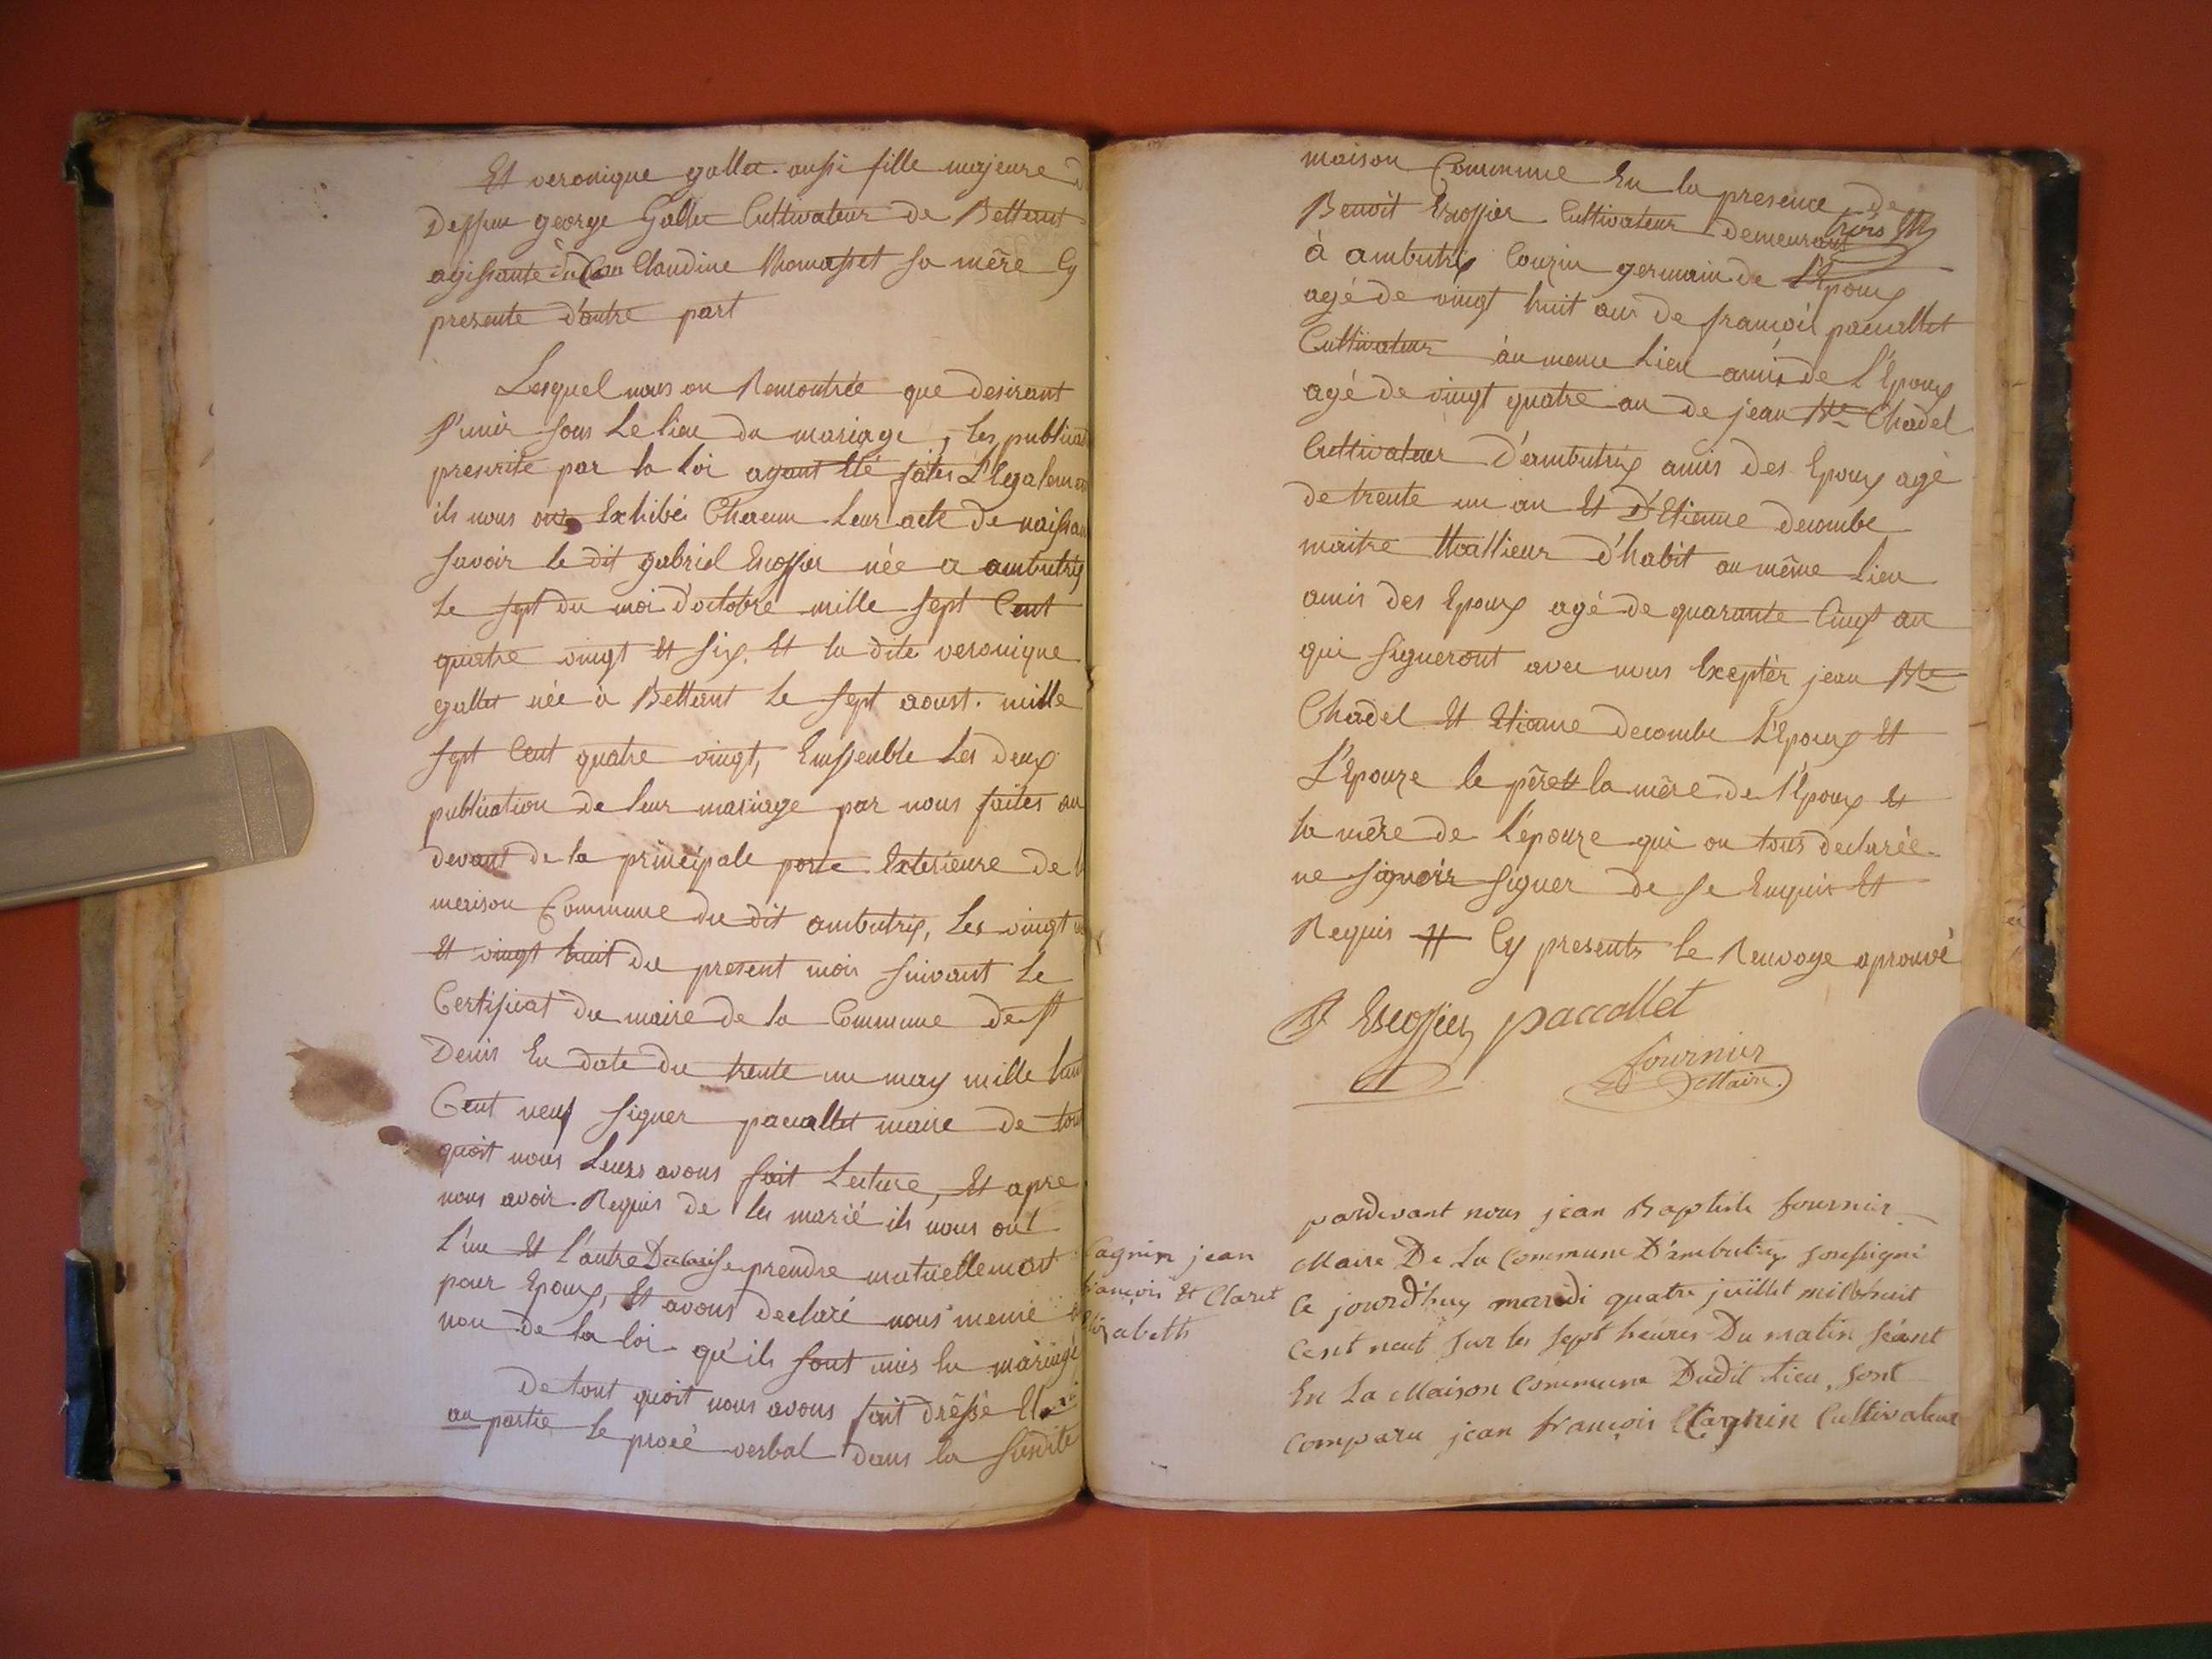 Et veronique gallet aussi fille majeure
Deffun george Gallet Cultivateur de Bettant
agissante Claudine Thomasset sa mère Cy
presente d'autre part
Lesquel nous on Remontrée que desirant
s'unir sous Le lien du mariage, les publicat
prescrite par la loi ayant Eté faites L'Egalement
ils nous Exhibés Chacun Leur acte de naissan
savoir le dit gabriel Escoffier née a ambutrix
Le sept du moi d'octobre mille sept Cent
quatre vingt et six. Et la dite veronique
gallet née à Bettant Le sept aoust. mille
sept Cent quatre vingt, Enssemble Les deux
publication de leur mariage par nous faites au
devant de la principale porte Exterieure de
maison Commune du dit ambutrix, Les vingt
Et vingt huit du present mois suivant Le
Certificat du maire de la Commune de St
Denis En date du trente un may mille huit
Cent neuf signer paccallet maire de tout
quoit nous Leurs avons fait Lecture, Et apre
nous avoir Requis de les marié ils nous ont
L'un Et l'autre Declaré se prendre mutuellemont
pour Epoux, Et avons declaré nous meme au
non de la loi qu'ils sont unis En mariage
De tout quoit nous avons fait drêssé Et
au partie le procé verbal dans la susdite
maison Commune En la presence de
trois
Benoit Escoffier Cultivateur demeurant
à ambutrix Couzin germain de L'Epoux
agé de vingt huit ans de françois paccallet
Cultivateur au meme Lieu amis de L'Epoux
agé de vingt quatre an de jean Bte Chadel
Cultivateur D'ambutrix amis des Epoux agé
de trente un an Et D'Etienne decombe
maitre ttaillieur d'habit au même Lieu
amis des Epoux agé de quarante Cinq an
qui signeront avec nous Exeptér jean Bte
Chadel Et Etienne decombe L'Epoux Et
L'Epouze le père et la mère de l'Epoux et
la mère de L'épouze qui on tous declarée
ne signoir signer de se Enquis Et
Requis # Cy presents le Renvoye aprouvé
B Escoffier paccallet
fournier
Maire
Cagnin jean
françois Et Claret
Elizabeth
pardevant nous jean Baptiste fournier
Maire De La Commune D'ambutrix soussigné
Ce jourd'huy mardi quatre juillet mil huit
Cent neuf sur les sept heures Du matin séant
En La Maison Commune Dudit Lieu, sont
Comparu jean françois Cagnin Cultivateur